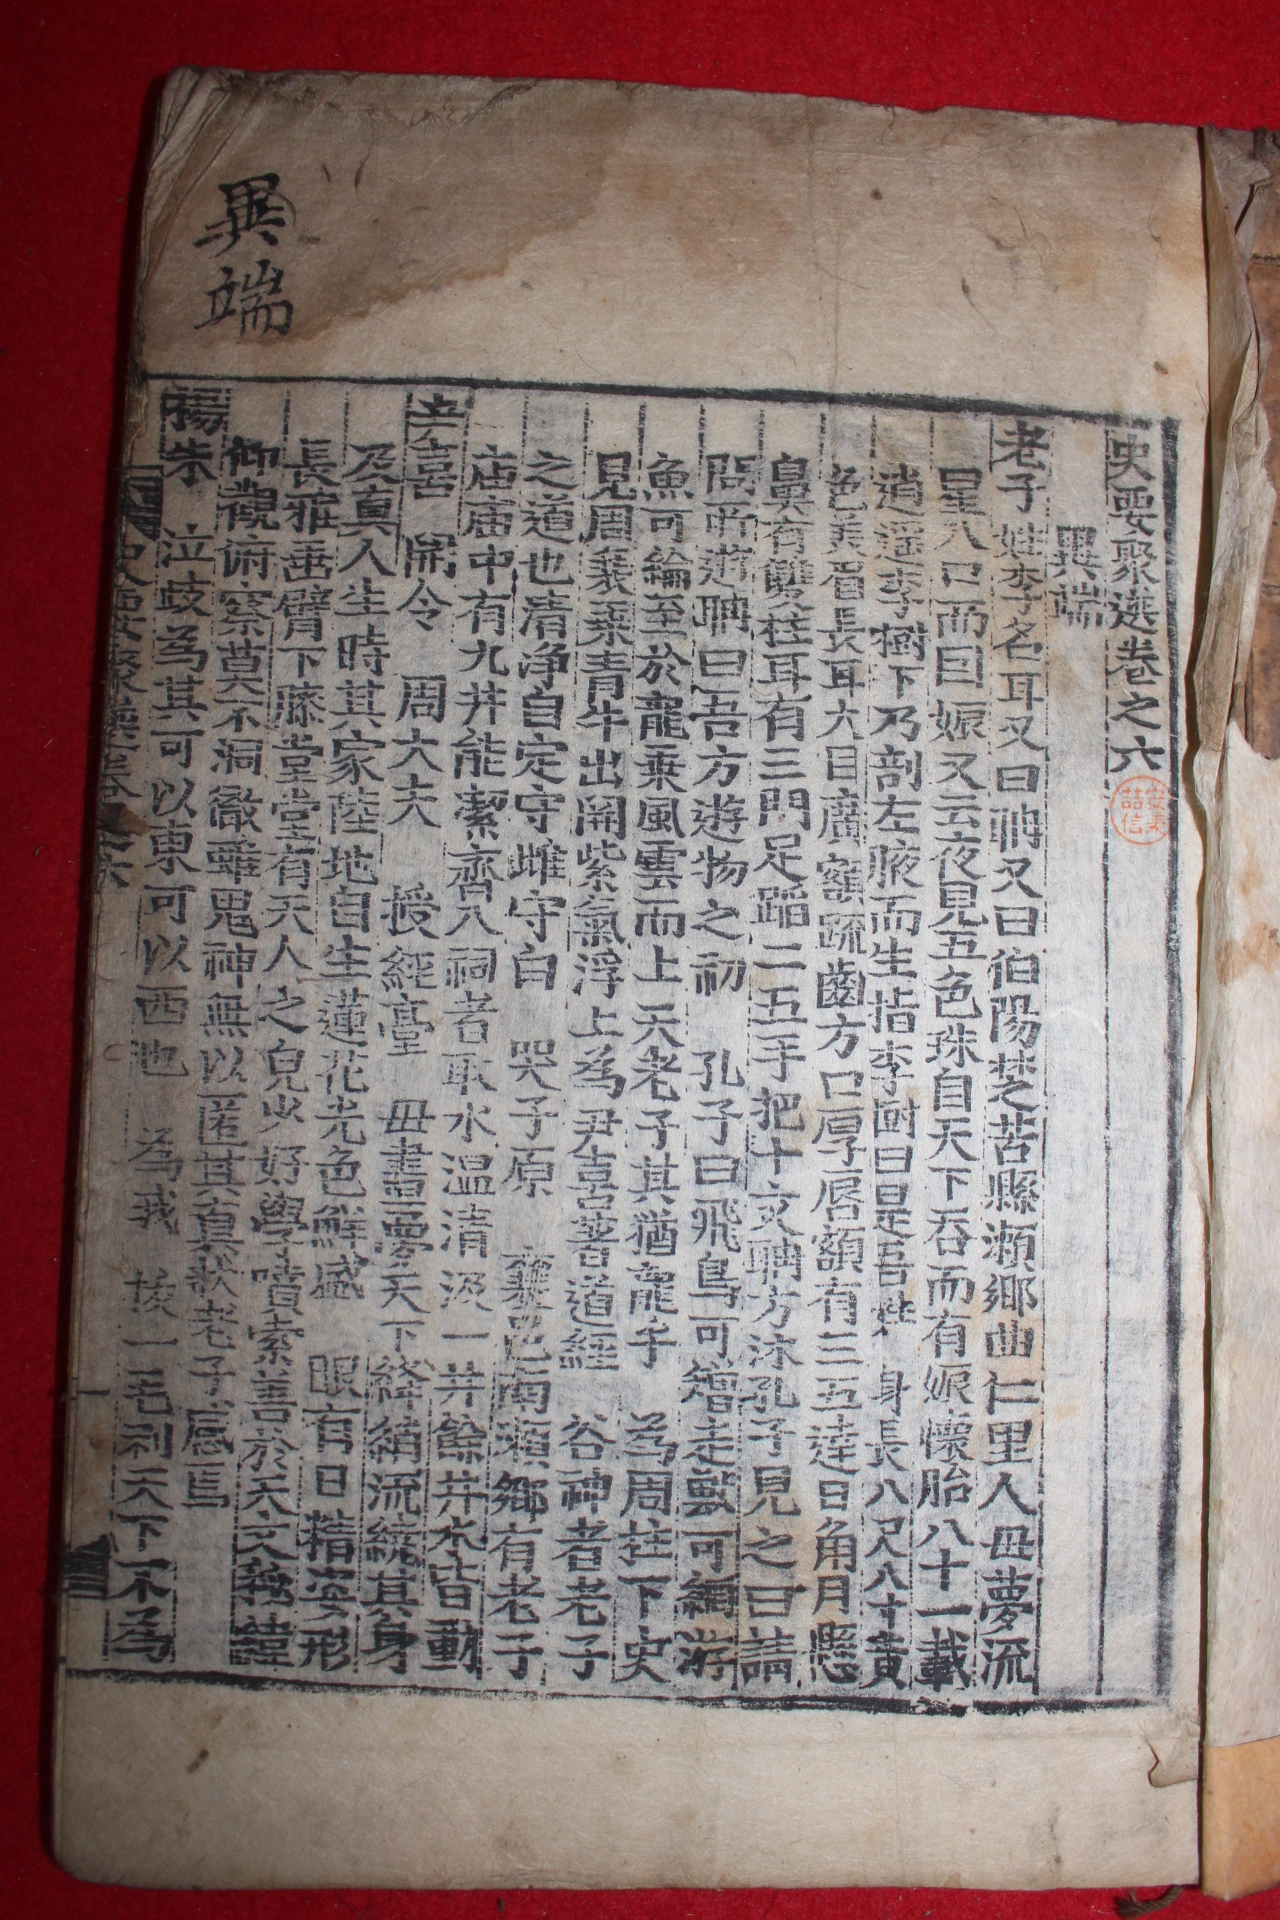 異端
史要聚選卷之六
異端
老子 姓李名耳又曰聃又曰伯陽楚苦縣瀨鄉曲仁里人母夢流
星入口而曰娠又云夜見五色珠自天下吞而有娠懷胎八十一載
逍遥李樹下乃剖左腋而生指李樹曰是吾姓 身長八尺八寸黃
色美眉長耳大目廣額疏齒方口厚唇額有三五達日角月懸
鼻有雙柱耳有三門足蹈二五手把十文聃方沐孔子見之曰請
問所遊聃曰吾方遊物之初 孔子曰飛鳥可矰走獸可網游
魚可綸至於龍乗風雲而上天老子其猶龍乎 爲周柱下史
見周衰乗青牛出關紫氣浮上爲尹喜著道經 谷神者老子
之道也清净自定守雌守白 哭子原 襄邑南瀨鄉有老子
庙庙中有九井能潔齊入祠者取水温清汲一井餘井水皆動
尹喜 關令 周大夫 授經臺 母晝夢天下絳綃流繞其身
及真人生時其家陸地自生蓮花光色鮮盛 眼有日精姿形
長雅垂臂下膝堂堂有天人之皃少好學墳索善於天文秘緯
仰觀俯察莫不洞徹雖鬼神無以匿其真狀老子感焉
楊朱 泣歧爲其可以東可以西也 爲我 拔一毛利天下不爲
史要聚選卷之六
一
安秉喆信